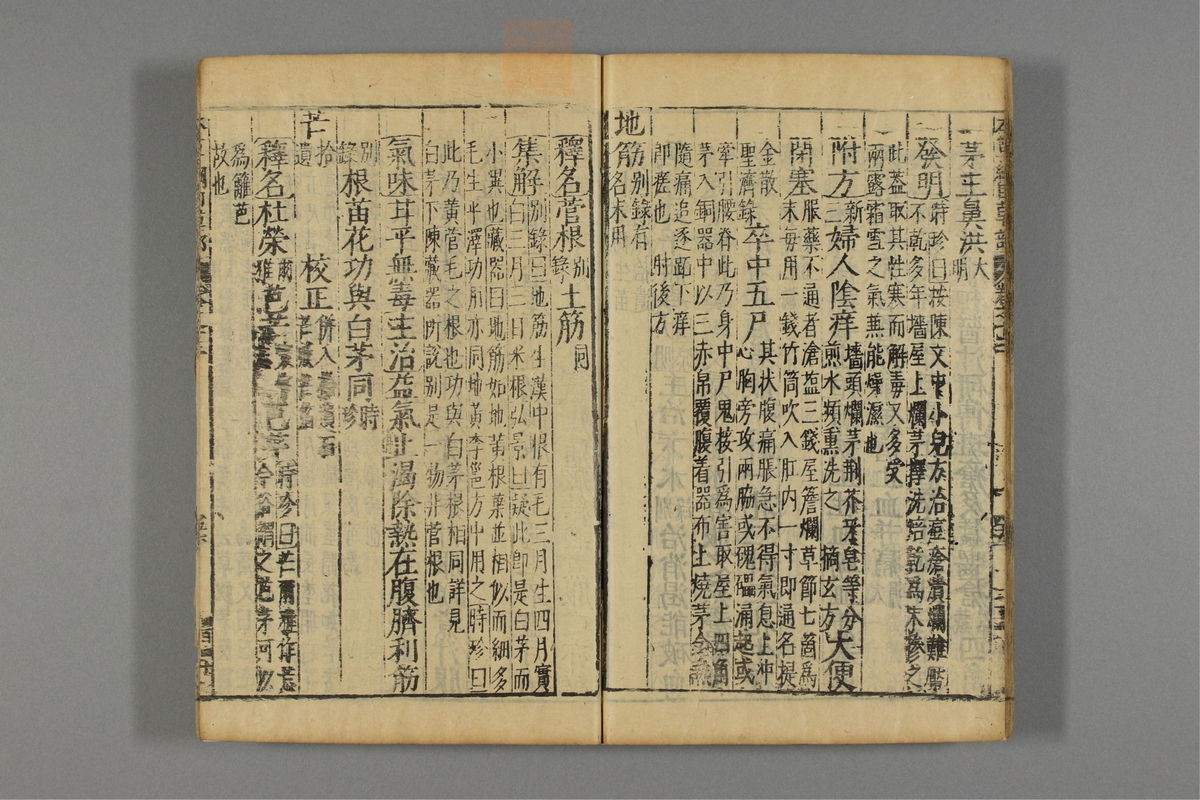 茅主鼻洪大明
發明時珍曰按陳文中小兒方治痘瘡潰爛難靨
不乾多年墻屋上爛茅擇洗焙乾爲末摻之
此蓋取其性寒而解毒又多受
雨露霜雪之氣兼能燥濕也
附方新三婦人陰痒墻頭爛茅荆芥牙皂等分
煎水頻熏洗之 摘玄方大便
閉塞服藥不通者滄盐三錢屋簷爛草節七箇爲
末每用一錢竹筒吹入肛内一寸即通名提
金散
聖濟錄卒中五尸其状腹痛脹急不得氣息上冲
心胸旁攻兩脇或磈礧涌起或
牽引腰脊此乃身中尸鬼接引爲害取屋上四角
茅入銅器中以三赤帛覆腹着器布上燒茅令熱
隨痛追逐蹠下痒
即瘥也 肘後方
地筋別錄有名未用
釋名菅根別錄土筋同
集解別錄曰地筋生漢中根有毛三月生四月實
白三月三日采根弘景曰疑此即是白茅而
小異也藏器曰地筋如地黄根葉並相似而細多
毛生平澤功用亦同地黄李邕方中用之時珍曰
此乃黄菅毛之根也功與白茅根相同詳見
白茅下陳藏器所説别是一物非菅根也
氣味甘平無毒主治益氣止渴除熱在腹臍利筋
別錄根苗花功與白茅同時珍
芒拾遺 校正併入
釋名杜榮爾雅芭芒 芭茅 時珍曰芒爾雅作莣
今俗謂之芭茅可以
爲籬芭
故也